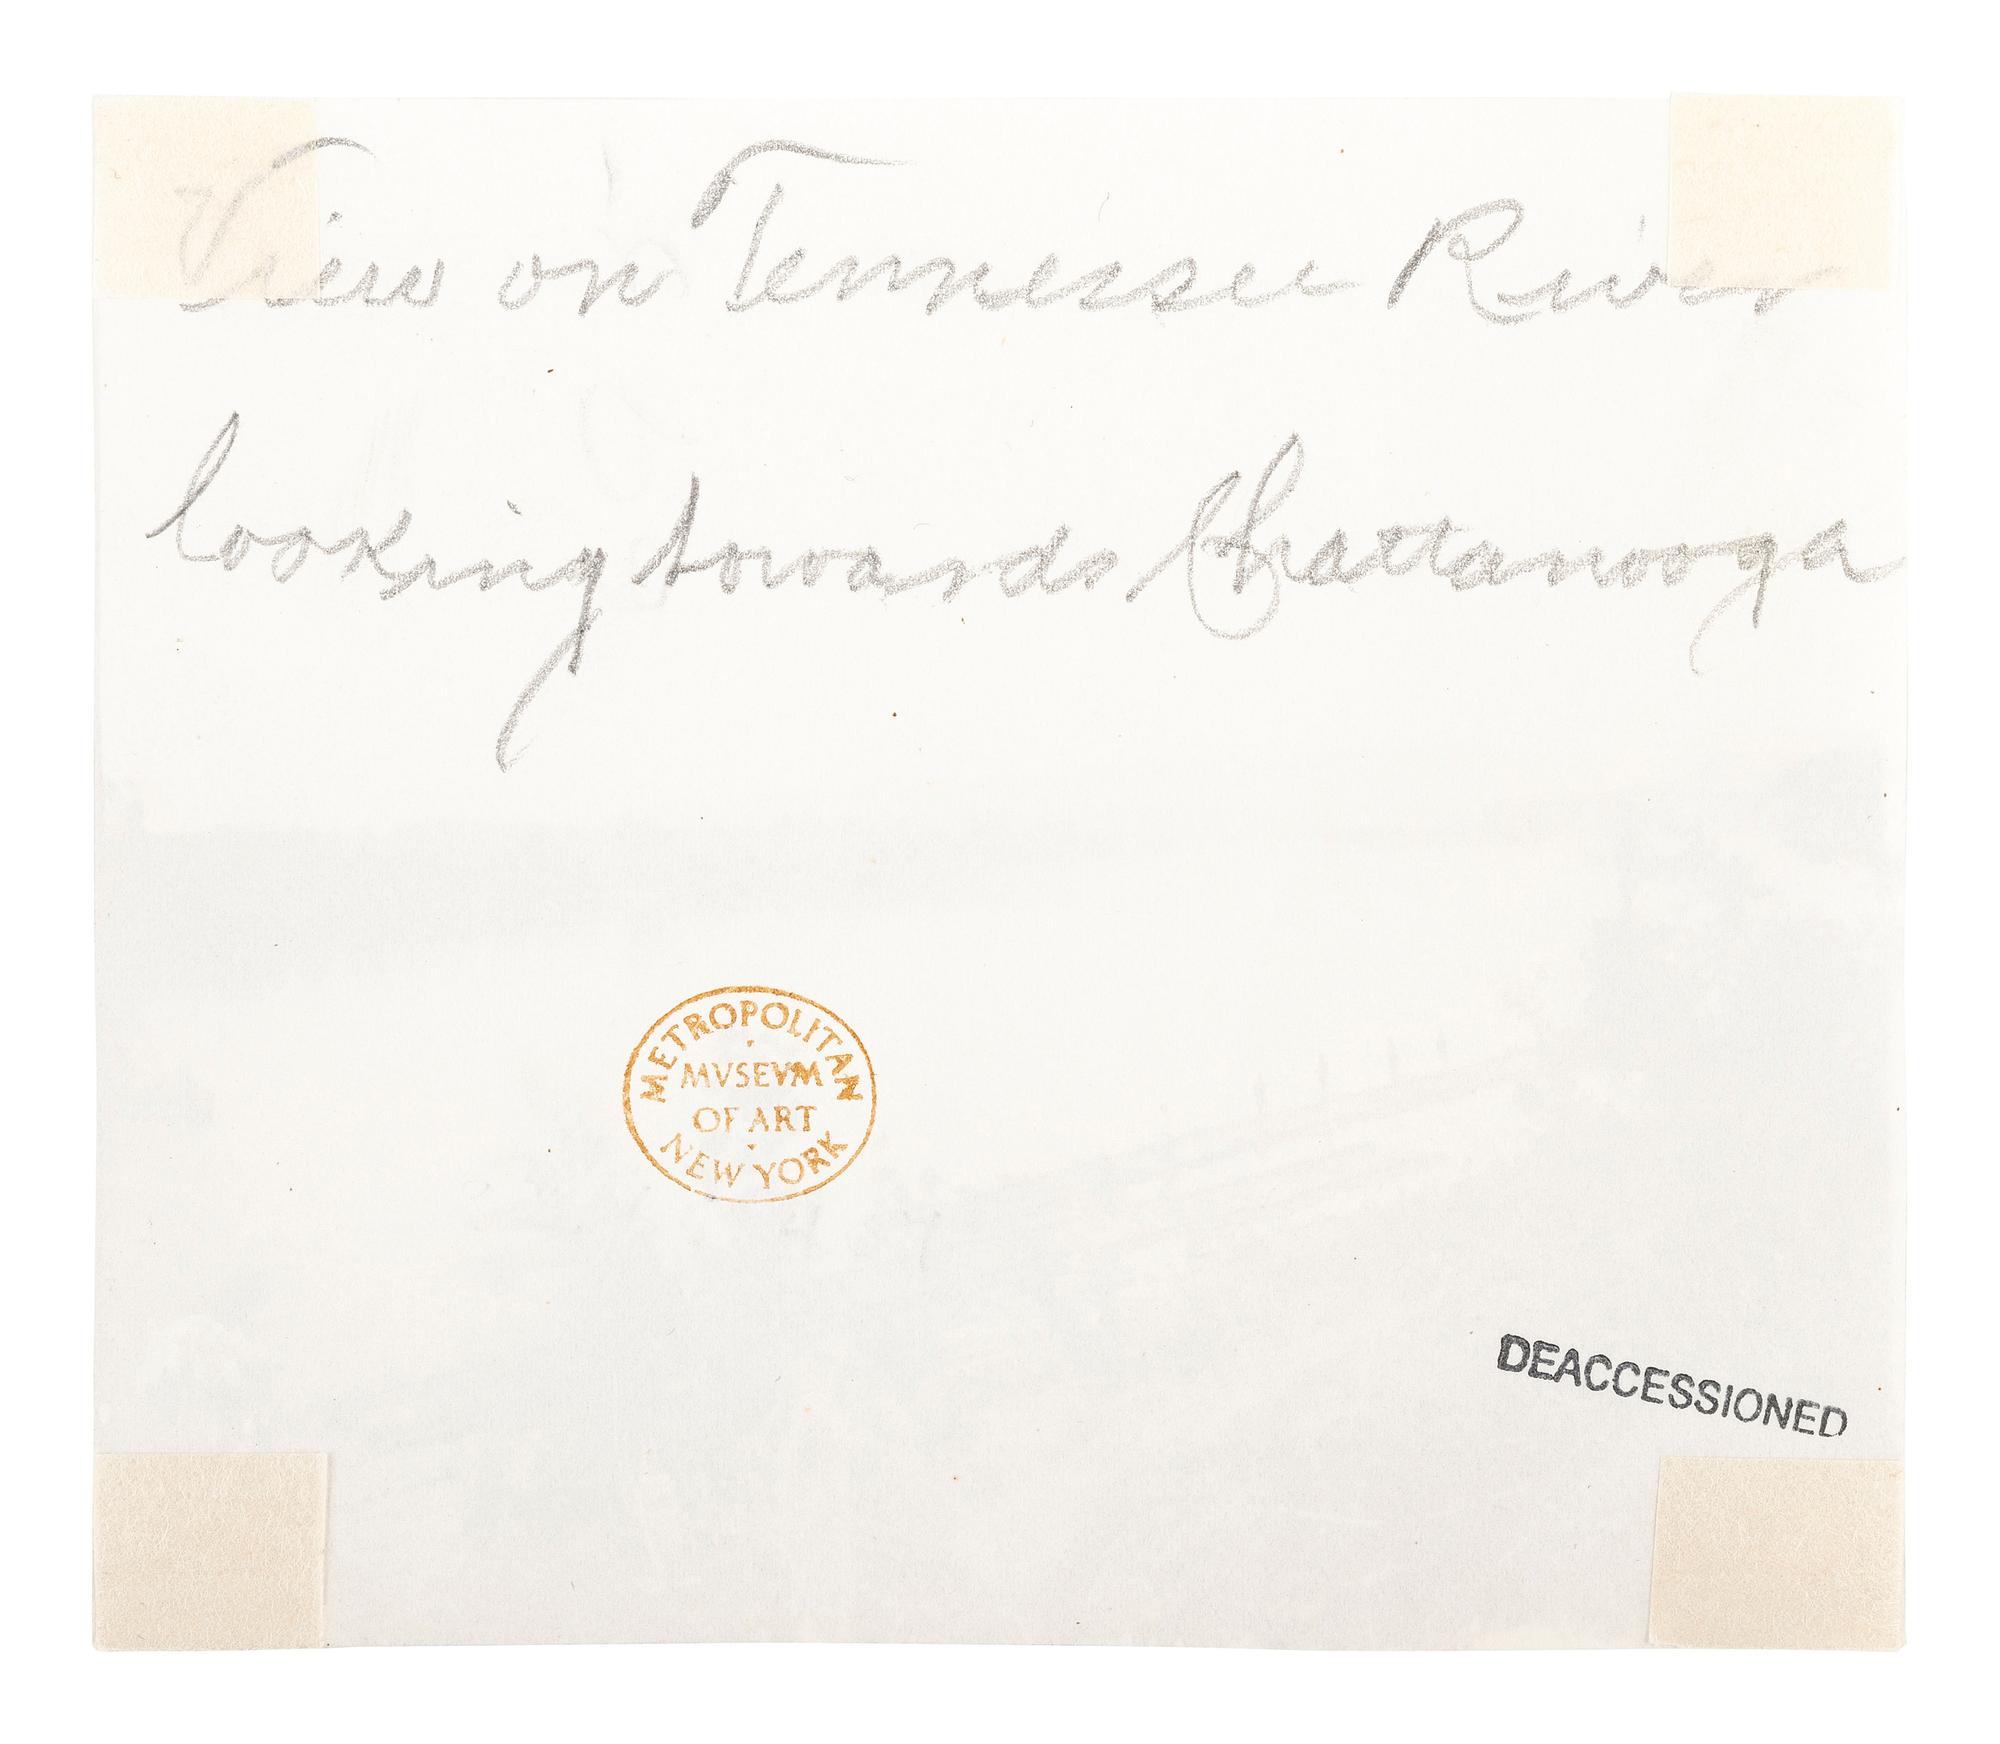 View on Tennessee River
looking towards Chattanooga
METROPOLITAN
MVSEVM
OF ART
NEW YORK
DEACCESSIONED